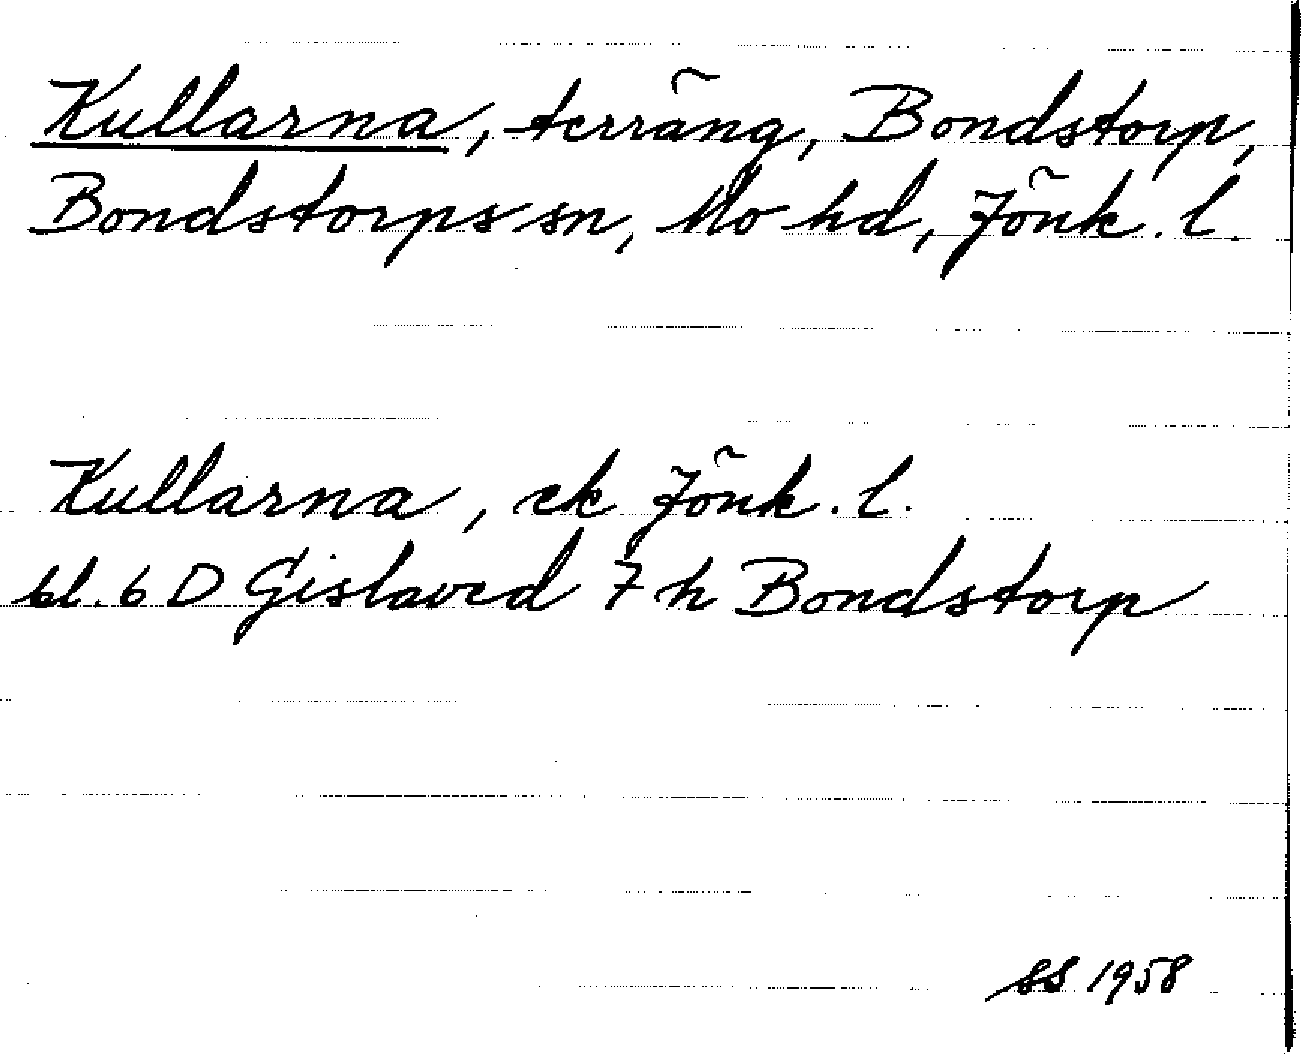 Kullarna, terräng, Bondstorp,
Bondstorps sn, Mo hd, Jönk. l.
Kullarna, ek Jönk. l.
bl. 6 D Gislaved 7 h Bondstorp
SS 1958